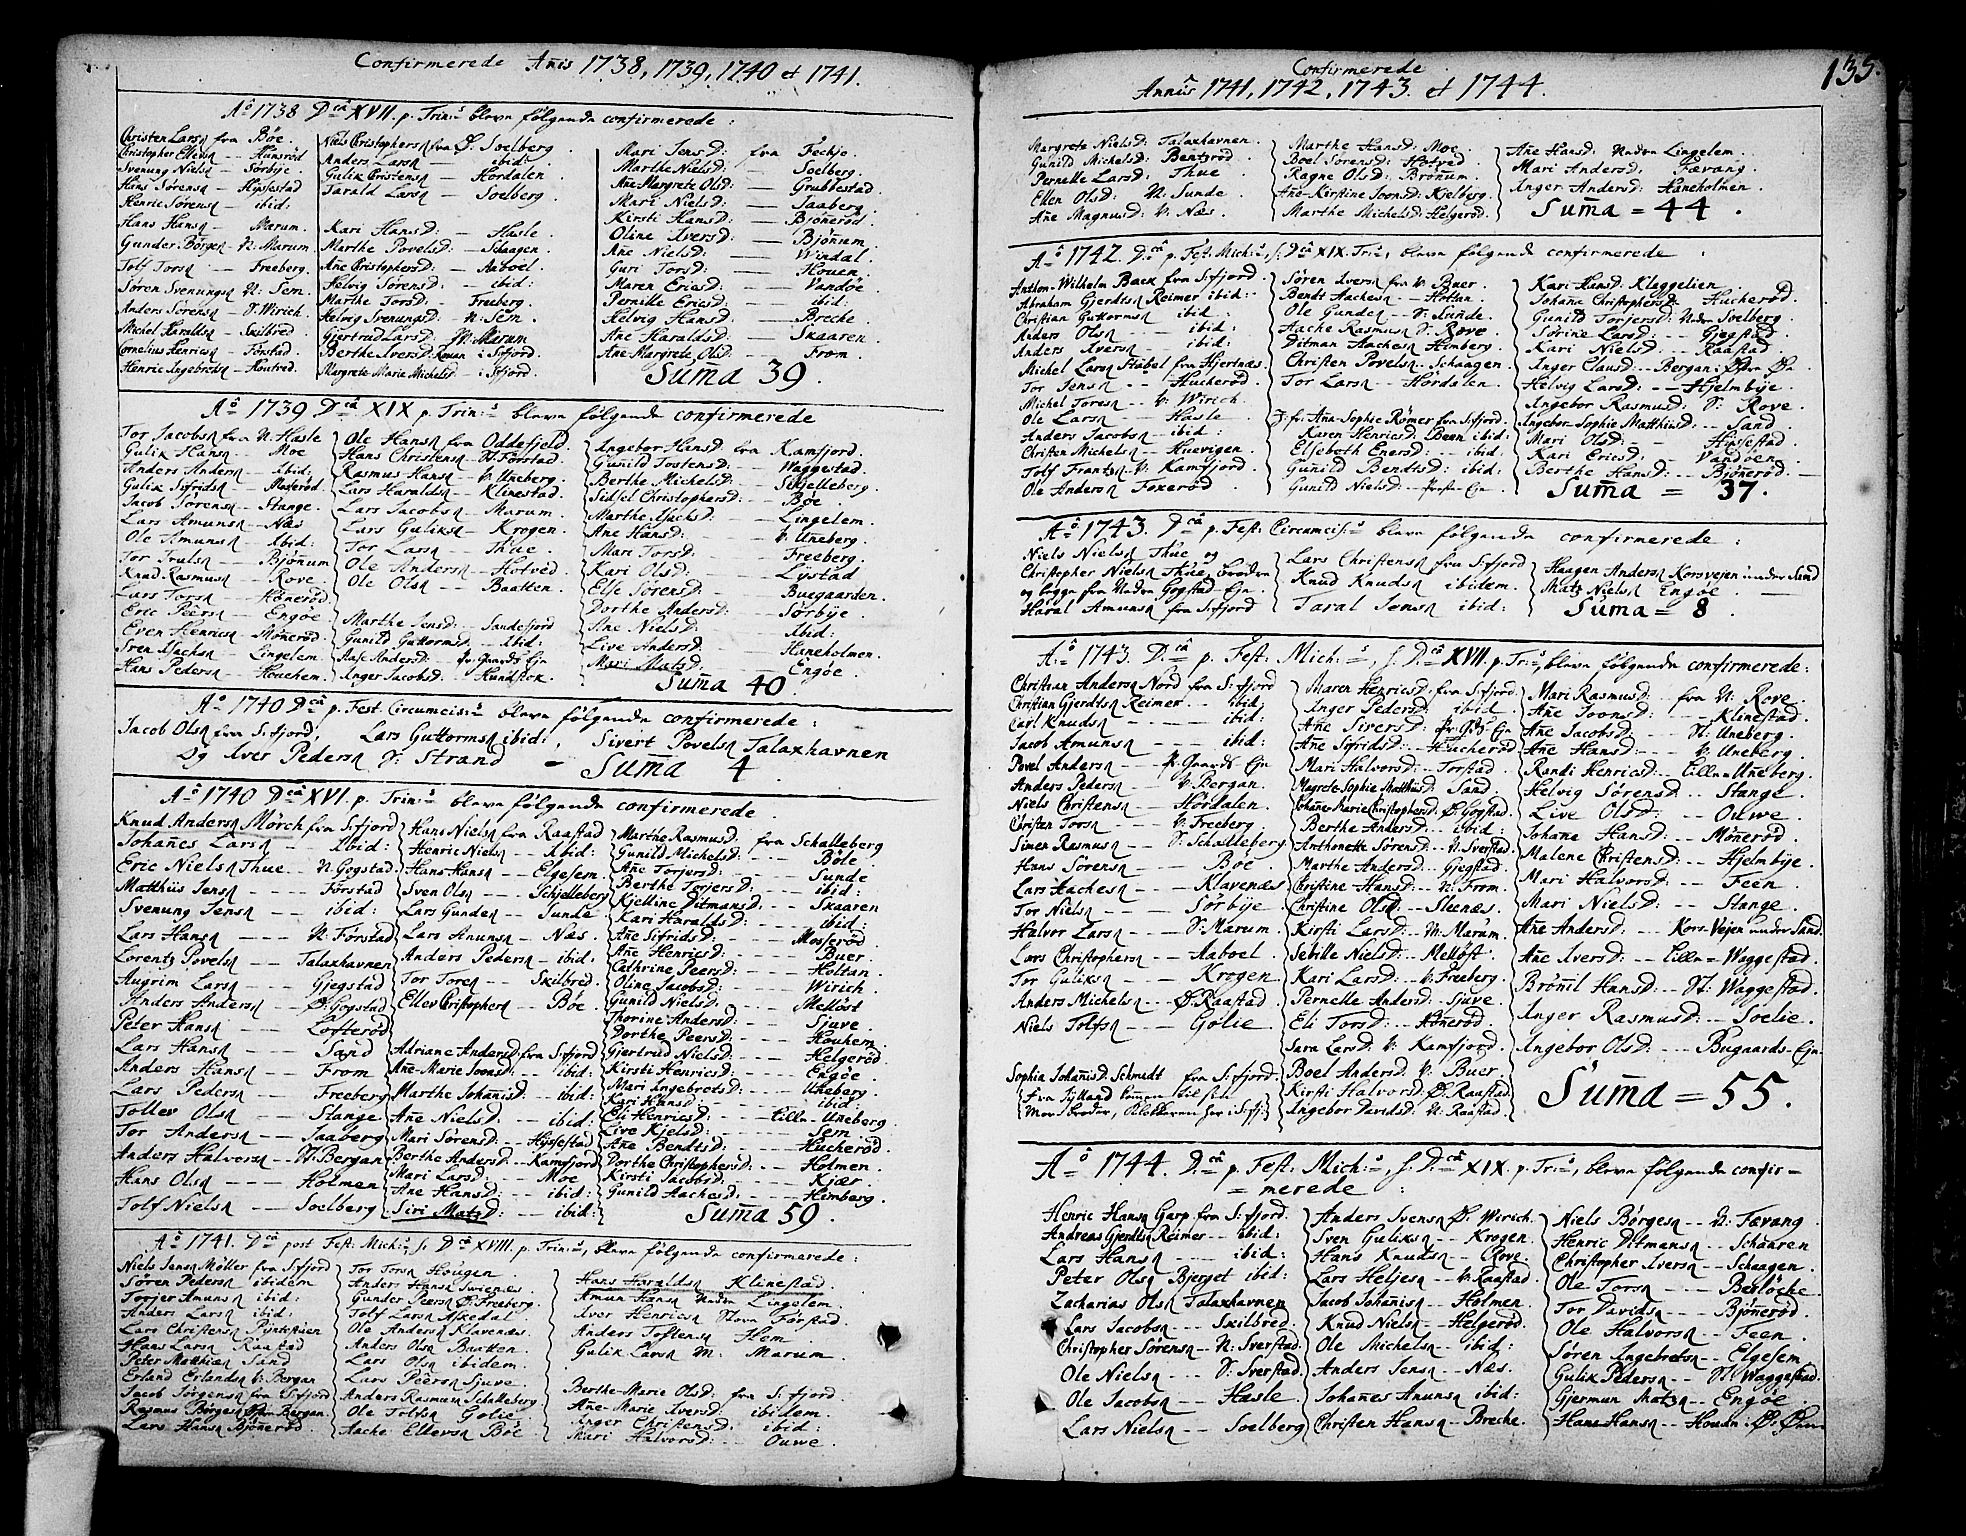 Confirmerede Añis 1738, 1739, 1740 et 1741.
Aõ 1738 Dcâ XVII. p. Trin: bleve følgende confirmerede:
Christen Larsn fra Bøe.
Christopher Ellevsn -- Hunsrød
Svenung Nielsn -- Sørbÿe.
Hans Sørensn -- Hÿssestad
Henric Sørensn -- ibid:
Hans Hansn -- Marum.
Gunder Børgen N: Marum
Tolf Torsn -- Freeberg.
Søren Svenungsn N: Sem.
Anders Sørensn -- V. Wirich.
Michel Haraldsn -- Skilbred
Cornelius Henricsn -- Førstad.
Henric Ingebretsn -- Houtved.
Niels Christophersn fra Ø. Soelberg
Anders Larsn -- ibid:
Gulik Cristensn -- Hørdalen
Tarald Larsn -- Soelberg
Kari HansD: -- Hasle
Marthe PovelsD: -- Schaagen.
Añe CristophersD: -- Aaboel.
Helvig SørensD: -- ibid:
Marthe TorsD: -- Freeberg.
Helvig SvenungsD: -- N: Sem.
Giertrud LarsD: N: Marum
Berthe IversD: Rouan i S:fjord.
Margrete Marie MichelsD -- i S:fjord.
Mari JensD: fra Fechje.
Marthe NielsD: -- Soelberg
Añe-Margrete OlsD: -- Grubbestad.
Mari NielsD: -- Saaberg
Kirsti HansD: -- Bjøñerød
Oline IversD: -- Bjønum
Añe NielsD: -- Windal.
Guri TorsD: -- Houen.
Maren EricsD: -- Vandøe
Pernille EricsD: -- ibid:
Helvig HansD: -- Breche.
Añe HaraldsD: -- Skaaren
Añe-Margrete OlsD: -- From.
Suma 39.
Aõ 1739 Dcâ XIX p. Trin: bleve følgende confirmerede
Tor Jacobsn fra N: Hasle
Gulik Hansn -- Moe
Anders Andersn -- ibid:
Gulik Sifridsn -- Moserød.
Jacob Sørensn -- Stange.
Lars Amunsn -- Næs
Ole Amunsn -- ibid:
Tor Trulsn -- Bjønum
Knud Rasmusn -- Rove.
Lars Torsn -- Hønerød.
Eric Peersn -- Engøe
Even Henricsn -- Mønerød
Iven Isachsn Lingelem
Hans Pedersn -- Houchem.
Ole Hansn fra Oddefjeld
Hans Christensn -- N. Førstad.
Rasmus Hansn -- V: Uneberg.
Lars Haraldsn -- Klinestad.
Lars Jacobsn -- Marum.
Lars Guliksn -- Krogen.
Tor Larsn -- Thue.
Ole Andersn -- Hotved
Ole Olsn -- Baatten.
Marthe JensD: -- Sandefjord
Gunild GuttormsD -- ibid:
Aase AndersD: Pr: Gaards Eje
Inger JacobsD: -- Hundstok.
Ingebor HansD: fra Kamfjord.
Guñild TostensD: -- Waggestad.
Berthe MichelsD: -- Schjelleberg
Sidsel ChristophersD: -- Bøe
Marthe IsachsD: -- Lingelem.
Ane HansD: -- V: Uneberg.
Mari TorsD: -- Freeberg.
Kari OlsD: -- Lÿstad
Else SørensD: -- Buegaarden.
Dorthe AndersD: -- Sørbÿe
Añe NielsD: -- ibid:
Live AndersD: -- Haneholmen.
Mari MatsD: -- Engøe
Suma 40.
Aõ 1740 Dcâ p. Fest. Circumcis: bleve følgende confirmerede:
Jacob Olsn fra S:fjord, Lars Guttormsn ibid:, Sivert Povelsn Talaxhavnen
Og Iver Pedersn V: Strand -- Suma 4.
Aõ 1740 Dcâ XVI. p. Trin: bleve følgende confirmerede.
Knud Andersn Mørch fra S:fjord
Johañes Larsn -- ibid:
Eric Nielsn Thue -- N: Gogstad
Matthiis Jensn -- Førstad
Svenung Jensn -- ibid:
Lars Hansn -- N: Førstad
Lorentz Povelsn Talaxhavnen
Augrim Larsn -- Gjegstad
Anders Andersn -- Ø. Gogstad
Peter Hansn -- Lofterød
Lars Hansn -- Sand
Anders Hansn -- From
Lars Pedersn -- Freeberg
Tollev Olsn -- Stange
Tor Andersn -- Saaberg
Anders Halvorsn -- N. Bergan
Hans Olsn -- Holmen
Tolf Nielsn -- Soelberg
Hans Nielsn fra Raastad
Henric Nielsn -- ibid:
Hans Hansn -- Elgesem.
Sven Olsn -- Schjelleberg
Lars Gunden -- Sunde
Lars Anunsn -- Næs.
Anders Pedersn -- ibid:
Tor Toresn -- Skilbred.
Ellev Christophersn -- Bøe.
Adriane AndersD fra S:fjord
Añe-Marie JoonsD: -- ibid:
Marthe JohañisD -- ibid:
Añe NielsD: -- ibid:
Mari SørensD: -- Hÿssestad
Berthe AndersD: -- Kamfjord
Mari LarsD: -- Moe
Añe HansD: -- ibid:
Siri MatsD: -- ibid:
Marthe RasmusD: fra Schalleberg
Gunild MichelsD: -- Bøle.
Añe TorjersD: -- Sunde
Berthe TorjersD: -- ibid:
Kjelline DitmansD: -- Skaaren
Kari HaraldsD: -- ibid:
Añe SifridsD: -- Moserød.
Añe HenricsD: -- Buer.
Cathrine PeersD: -- Holtan.
Oline JacobsD: -- Wirich.
Gunild NielsD: -- Melløst
Thorine AndersD: -- Sjuve.
Dorthe PeersD: -- Houhem.
Gjertrud NielsD: -- Helgerød
Kirsti HenricsD: -- Engøe.
Mari IngebretsD: -- Uneberg
Kari HansD: -- ibid:
Eli HenricsD: -- Lille-Uneberg
Live KjelsD: -- Sem
Añe BendtsD: -- Hucherød
Dorthe ChristophersD: -- Holmen.
Kirsti JacobsD: -- Kjær.
Gunild AachesD: -- Himberg.
Suma 59.
Aõ 1741. Dcâ post Fest: Mich:, s: Dcâ XVIII. p. Trin:, bleve følgende confirmerede:
Niels Jensn Møller fra S:fjord
Søren Pedersn ibidem
Torjer Amunsn ibid:
Anders Larsn ibid:
Lars Christensn
Hans Larsn Raastad
Peter Matthisn Sand
Erland Erlandsn V: Bergan
Jacob Jørgensn fra S:fjord
Rasmus Børgesn Østre Bergan
Lars Hansn Bjønerød.
Tor Torsn Hougen.
Anders Hansn
Gunder Peersn Ø. Freeberg.
Tolf Larsn Askedal.
Ole Andersn Klavenæs.
Anders Olsn Baatten.
Lars Olsn ibidem.
Lars Peersn Sjuve.
Anders Rasmusn Schalleberg
Ole Tolfsn Golie.
Aache Ellevsn Bøe
Hans Haraldsn Klinestad.
Amun Hansn Unden Lingelem
Iver Henricsn Store Førstad.
Anders Toftensn Hem.
Gulik Larsn M: Marum.
Berthe-Marie OlsD: fra S:fjord.
Añe-Marie IversD: ibidem.
Inger ChristensD: ibid:
Mari HalvorsD: -- Ouwe.
Confirmerede
Annis 1741, 1742, 1743. et 1744.
135.
Margrete NielsD: Talaxhavnen.
Gunild MichelsD: Bentsrød.
Pernelle LarsD: Thue.
Ellen OlsD: N: Sunde
Añe MagnusD: V: Næs.
Marthe HansD: Moe.
Boel SørensD: Hotved
Ragne OlsD: Brønum.
Añe-Kirstine JoonsD: Kjelberg.
Marthe MichelsD: Helgerød.
Añe HansD: Unden Lingelem.
Mari AndersD: Fævang.
Inger AndersD: Haneholmen.
Suma = 44.
Aõ 1742. D:câ p. Fest: Mich:, s: Dcâ XIX. Tri:, bleve følgende confirmerede:
Anthon-Wilhelm Baex fra S:fjord.
Abraham Gjerdtsn Reimer ibid:
Christian Guttormsn ibid:
Anders Olsn -- ibid:
Anders Iversn -- ibid:
Michel Larsn Stabel fra Hjertnæs.
Tor Jensn -- Hucherød.
Michel Toresn -- V: Wirich.
Ole Larsn -- Hasle.
Anders Jacobsn -- ibid.
Christen Michelsn -- Huevigen.
Tolf Frantzsn V: Kamfjord.
Ole Andersn Foxerød.
Søren Iversn fra V: Buer.
Bendt Aachesn -- Holtan.
Ole Gunden -- V: Sunde.
Aache Rasmusn V: Rove
Ditman Aachesn Himberg.
Christen Povelsn -- Schaagen
Tor Larsn -- Hørdalen
J:fr: Aña-Sophie Rømer fra S:fjord.
Karen HenricsD: Bean ibid:
Elsebeth EnersD: -- ibid:
Gunild BendtsD: ibid:
Gunild NielsD: -- Eje.
Kari HansD: Kleggelien.
Johane ChristophersD: Hucherød.
Gunild TorjersD: Unden Soelberg.
Sørine LarsD: -- Gjegstad.
Kari NielsD: -- Raastad.
Inger ClausD: -- Bergan: Østre
Helvig LarsD: -- Hjelmbÿe.
Ingebor RasmusD: V: Rove.
Ingebor Sophie MatthiisD: -- Sand.
Mari OlsD: -- Hÿssestad.
Kari EricsD: -- Vandøen.
Berthe HansD: -- Bjønerød.
Suma = 37.
Aõ 1743. Dcâ p. Fest: Circumcis: bleve følgende confirmerede:
Niels Nielsn Thue og
Christopher Nielsn Thue, brødre
og begge fra Unden Gogstad Eje.
Haral Amunsn fra S:fjord
Lars Christensn fra S:fjord
Knud Knudsn ibidem.
Taral Jensn ibid:
Haagen Andersn Korsvejen under Sand
Mats Nielsn Engøe.
Suma = 8
A:õ 1743. D:câ p. Fest: Mich:, s: D:câ XVII. p. Tr:, bleve følgende confirmerede:
Christian Andersn Nord fra S:fjord
Christian Gjerdtsn Reimer -- ibid
Carl Knudsn -- ibid:
Jacob Amunsn -- ibid:
Povel Andersn -- Pr: Gaards Eje
Anders Pedersn -- V: Bergan.
Niels Christensn -- Hørdalen
Christen Torsn -- V: Freeberg
Simen Rasmusn -- V: Schalleberg
Hans Sørensn -- Bøe
Lars Aachesn -- Klavenæs
Tor Nielsn -- Sørbÿe.
Halvor Larsn -- V: Marum
Lars Christophersn -- Aaboel.
Tor Guliksn -- Krogen
Anders Michelsn -- Ø. Raastad
Niels Tolfsn -- Golie.
Sophia JohañisD: Schmidt fra S:fjord:
Fra Jÿlland
Maren HenricsD: fra S:fjord
Inger PedersD: ibid
Añe SiversD: Pr: Gds Eje
Añe SifridsD: -- Hucherød
Mari HalvorsD: -- Torstad.
Magrete Sophie MatthiisD: Sand.
Johane Marie ChristophersD. Ø. Gogstad.
Berthe AndersD: -- ibid:
Anthonette SørensD: -- N: Sverstad.
Marthe AndersD: Gjegstad.
Christine HansD: -- N: From
Christine OlsD: -- Steenæs.
Kirsti LarsD: -- M: Marum.
Sebille NielsD: Melløst.
Kari LarsD: -- V: Freeberg.
Pernelle AndersD: Sjuve.
Eli TorsD: -- Hønerød.
Sara LarsD: V: Kamfjord.
Boel AndersD: V: Buer.
Kirsti HalvorsD: Ø. Raastad
Ingebor DavidsD: N: Raastad.
Mari RasmusD: -- fra N: Rove.
Añe JoonsD: -- Klinestad.
Añe JacobsD: -- St. Uneberg.
Añe HansD: -- V: Uneberg.
Randi HenricsD: -- Lille-Uneberg.
Helvig SørensD: -- Stange.
Live OlsD: -- Ouwe.
Johane HansD: -- Mønerød.
Malene ChristensD: -- Hjelmbÿe.
Mari HalvorsD: -- Feen.
Mari NielsD: -- Stange.
Añe AndersD: -- Kors-Vejen under Sand.
Añe IversD: -- Lille-Waggestad.
Brønil HansD: -- St. Waggestad.
Inger RasmusD: -- Soelie.
Ingebor OlsD: -- Bugaards-Eje
Suma = 55.
Aõ 1744. D:câ p. Fest: Mich:, s: D:câ XIX. p. Tr:, bleve følgende confir=
=merede:
Henric Hansn Garp fra S:fjord.
Andreas Gjerdtsn Reimer -- ibid:
Lars Hansn -- ibid:
Peter Olsn Bjerget ibid:
Zacharias Olsn Talaxhavnen
Lars Jacobsn -- Skilbred.
Christopher Sørensn -- N: Sverstad.
Ole Nielsn -- V: Sverstad.
Ole Jacobsn -- Hasle.
Lars Nielsn -- Soelberg
Anders Svensn Ø. Wirich.
Sven Guliksn -- Krogen.
Hans Knutsn -- Rove.
Lars Heljesn -- V: Raastad.
Jacob Johañisn -- Holmen.
Knud Nielsn -- Helgerød.
Ole Michelsn -- ibid:
Anders Jensn -- Næs.
Johañes Anunsn ibid:
Christen Hansn -- Breche.
Niels Børgesn -- N: Fævang.
Henric Ditmansn -- Schaaren
Christopher Iversn -- Schaagen.
Ole Torsn -- Berløche
Tor Davidsn -- Bjønerød.
Ole Halvorsn -- Feen.
Søren Ingebretsn -- Elgesem.
Gulik Pedersn -- St. Waggestad.
Gjermun Matsn -- Engøe
Hans Hansn -- Houan. Ø: